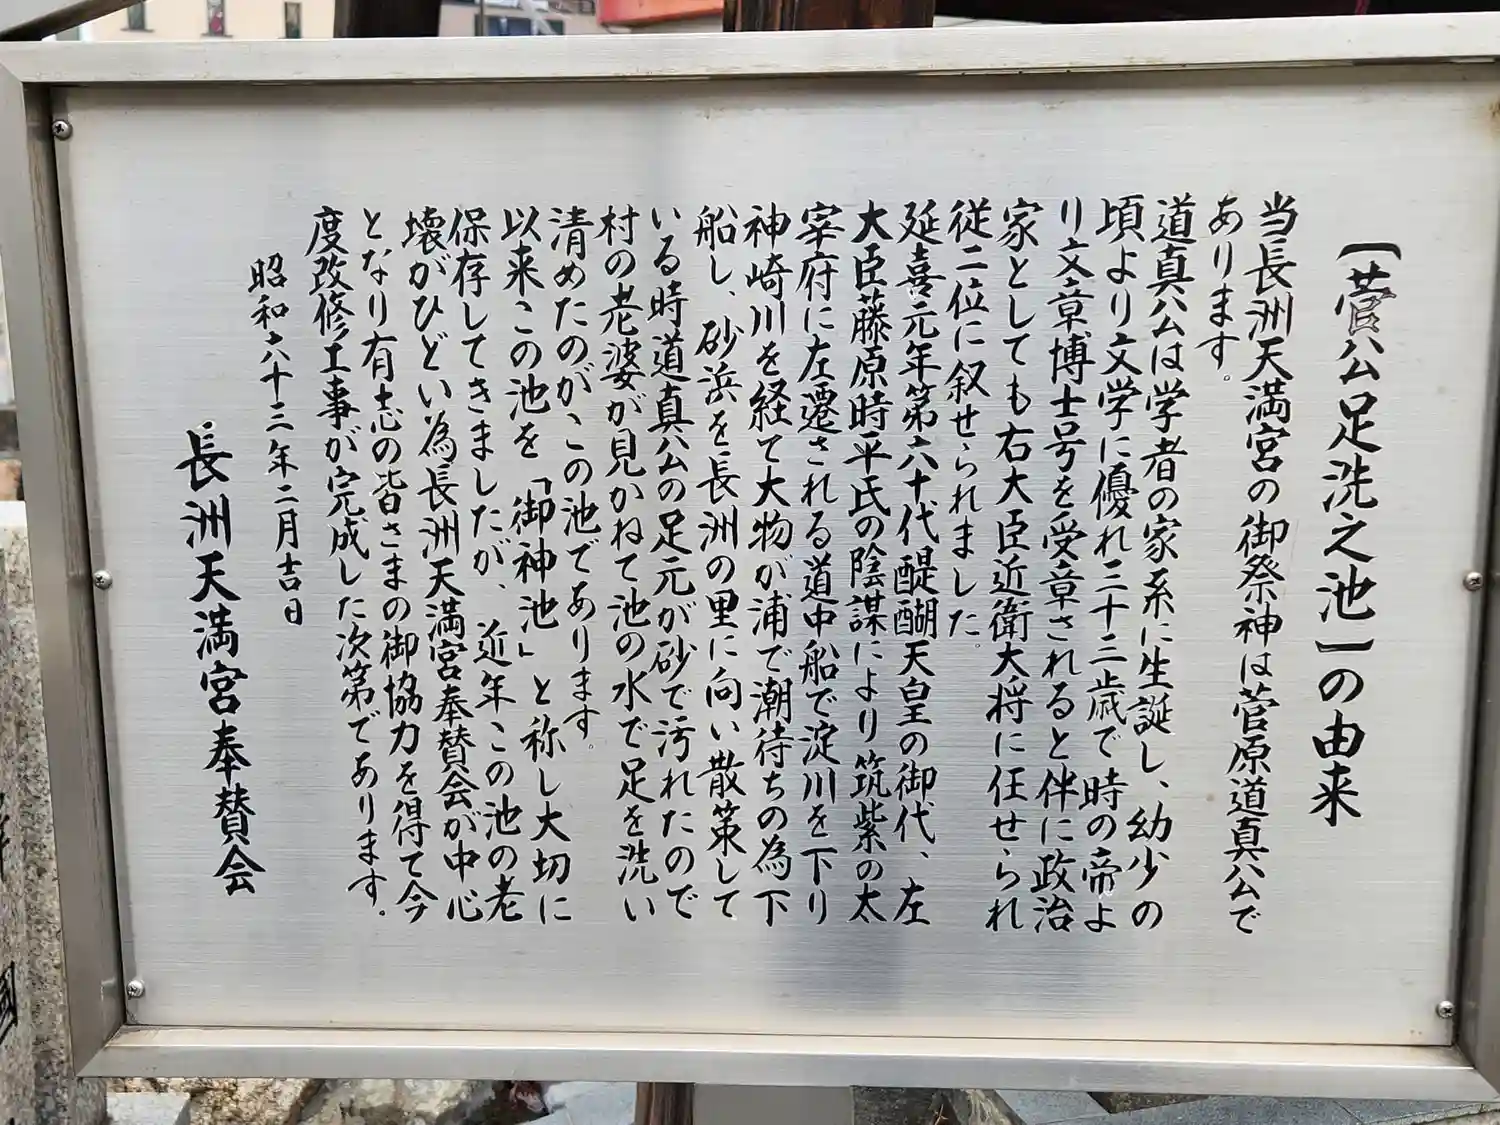 「菅公足洗之池」の由来
当長洲天満宮の御祭神は菅原道真公で
あります。
道真公は学者の家系に生誕し、幼少の
頃より文学に優れ三十三歳で時の帝よ
り文章博士号を受章されると伴に政治
家としても右大臣近衛大将に任せられ
従二位に叙せられました。
延喜元年第六十代醍醐天皇の御代、左
大臣藤原時平氏の陰謀により筑紫の太
宰府に左遷される道中船で淀川を下り
神崎川を経て大物が浦で潮待ちの為下
船し、砂浜を長洲の里に向い散策して
いる時道真公の足元が砂で汚れたので
村の老婆が見かねて池の水で足を洗い
清めたのがこの池であります。
以来この池を「御神池」と称し大切に
保存してきましたが、近年この池の老
壊がひどい為長洲天満宮奉賛会が中心
となり有志の皆さまの御協力を得て今
度改修工事が完成した次第であります。
昭和六十三年二月吉日
長洲天満宮奉賛会
國